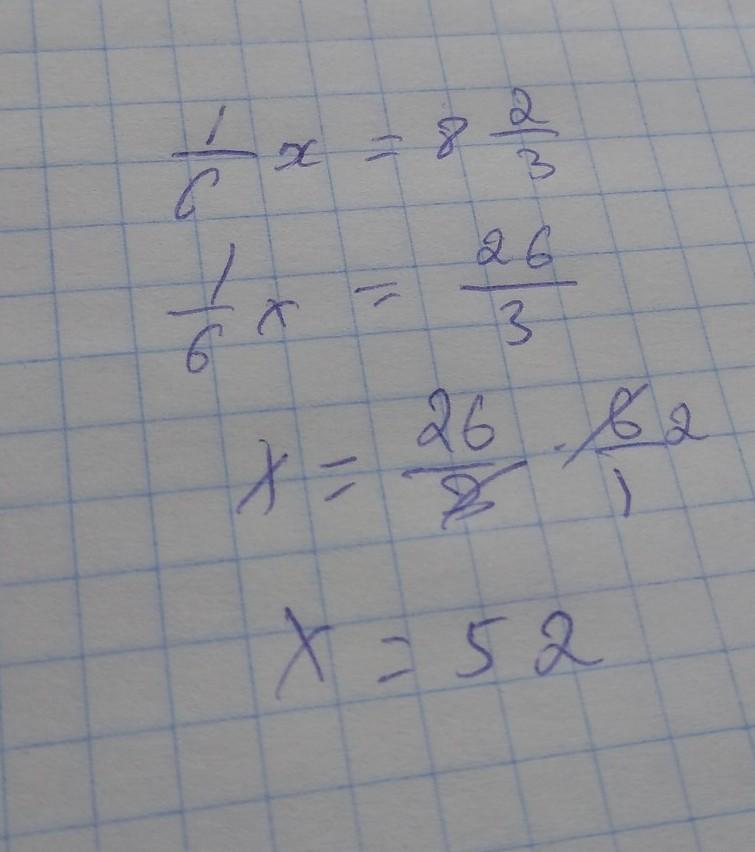 1/6 x = 8 2/3
1/6 x = 26/3
x = 26/3 · 6/1 2
x = 52